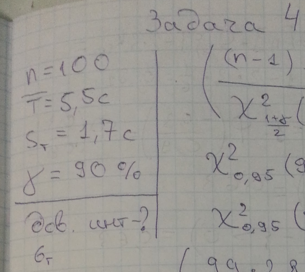 Задача 4
n=100
T̅=5,5с
Sₜ=1,7с
γ=90%
Дов. инт-?
бₜ
(n-1)
χ²₁₊ᵧ/₂(
χ²₀,₉₅(9
χ²₀,₉₅(
(99·28